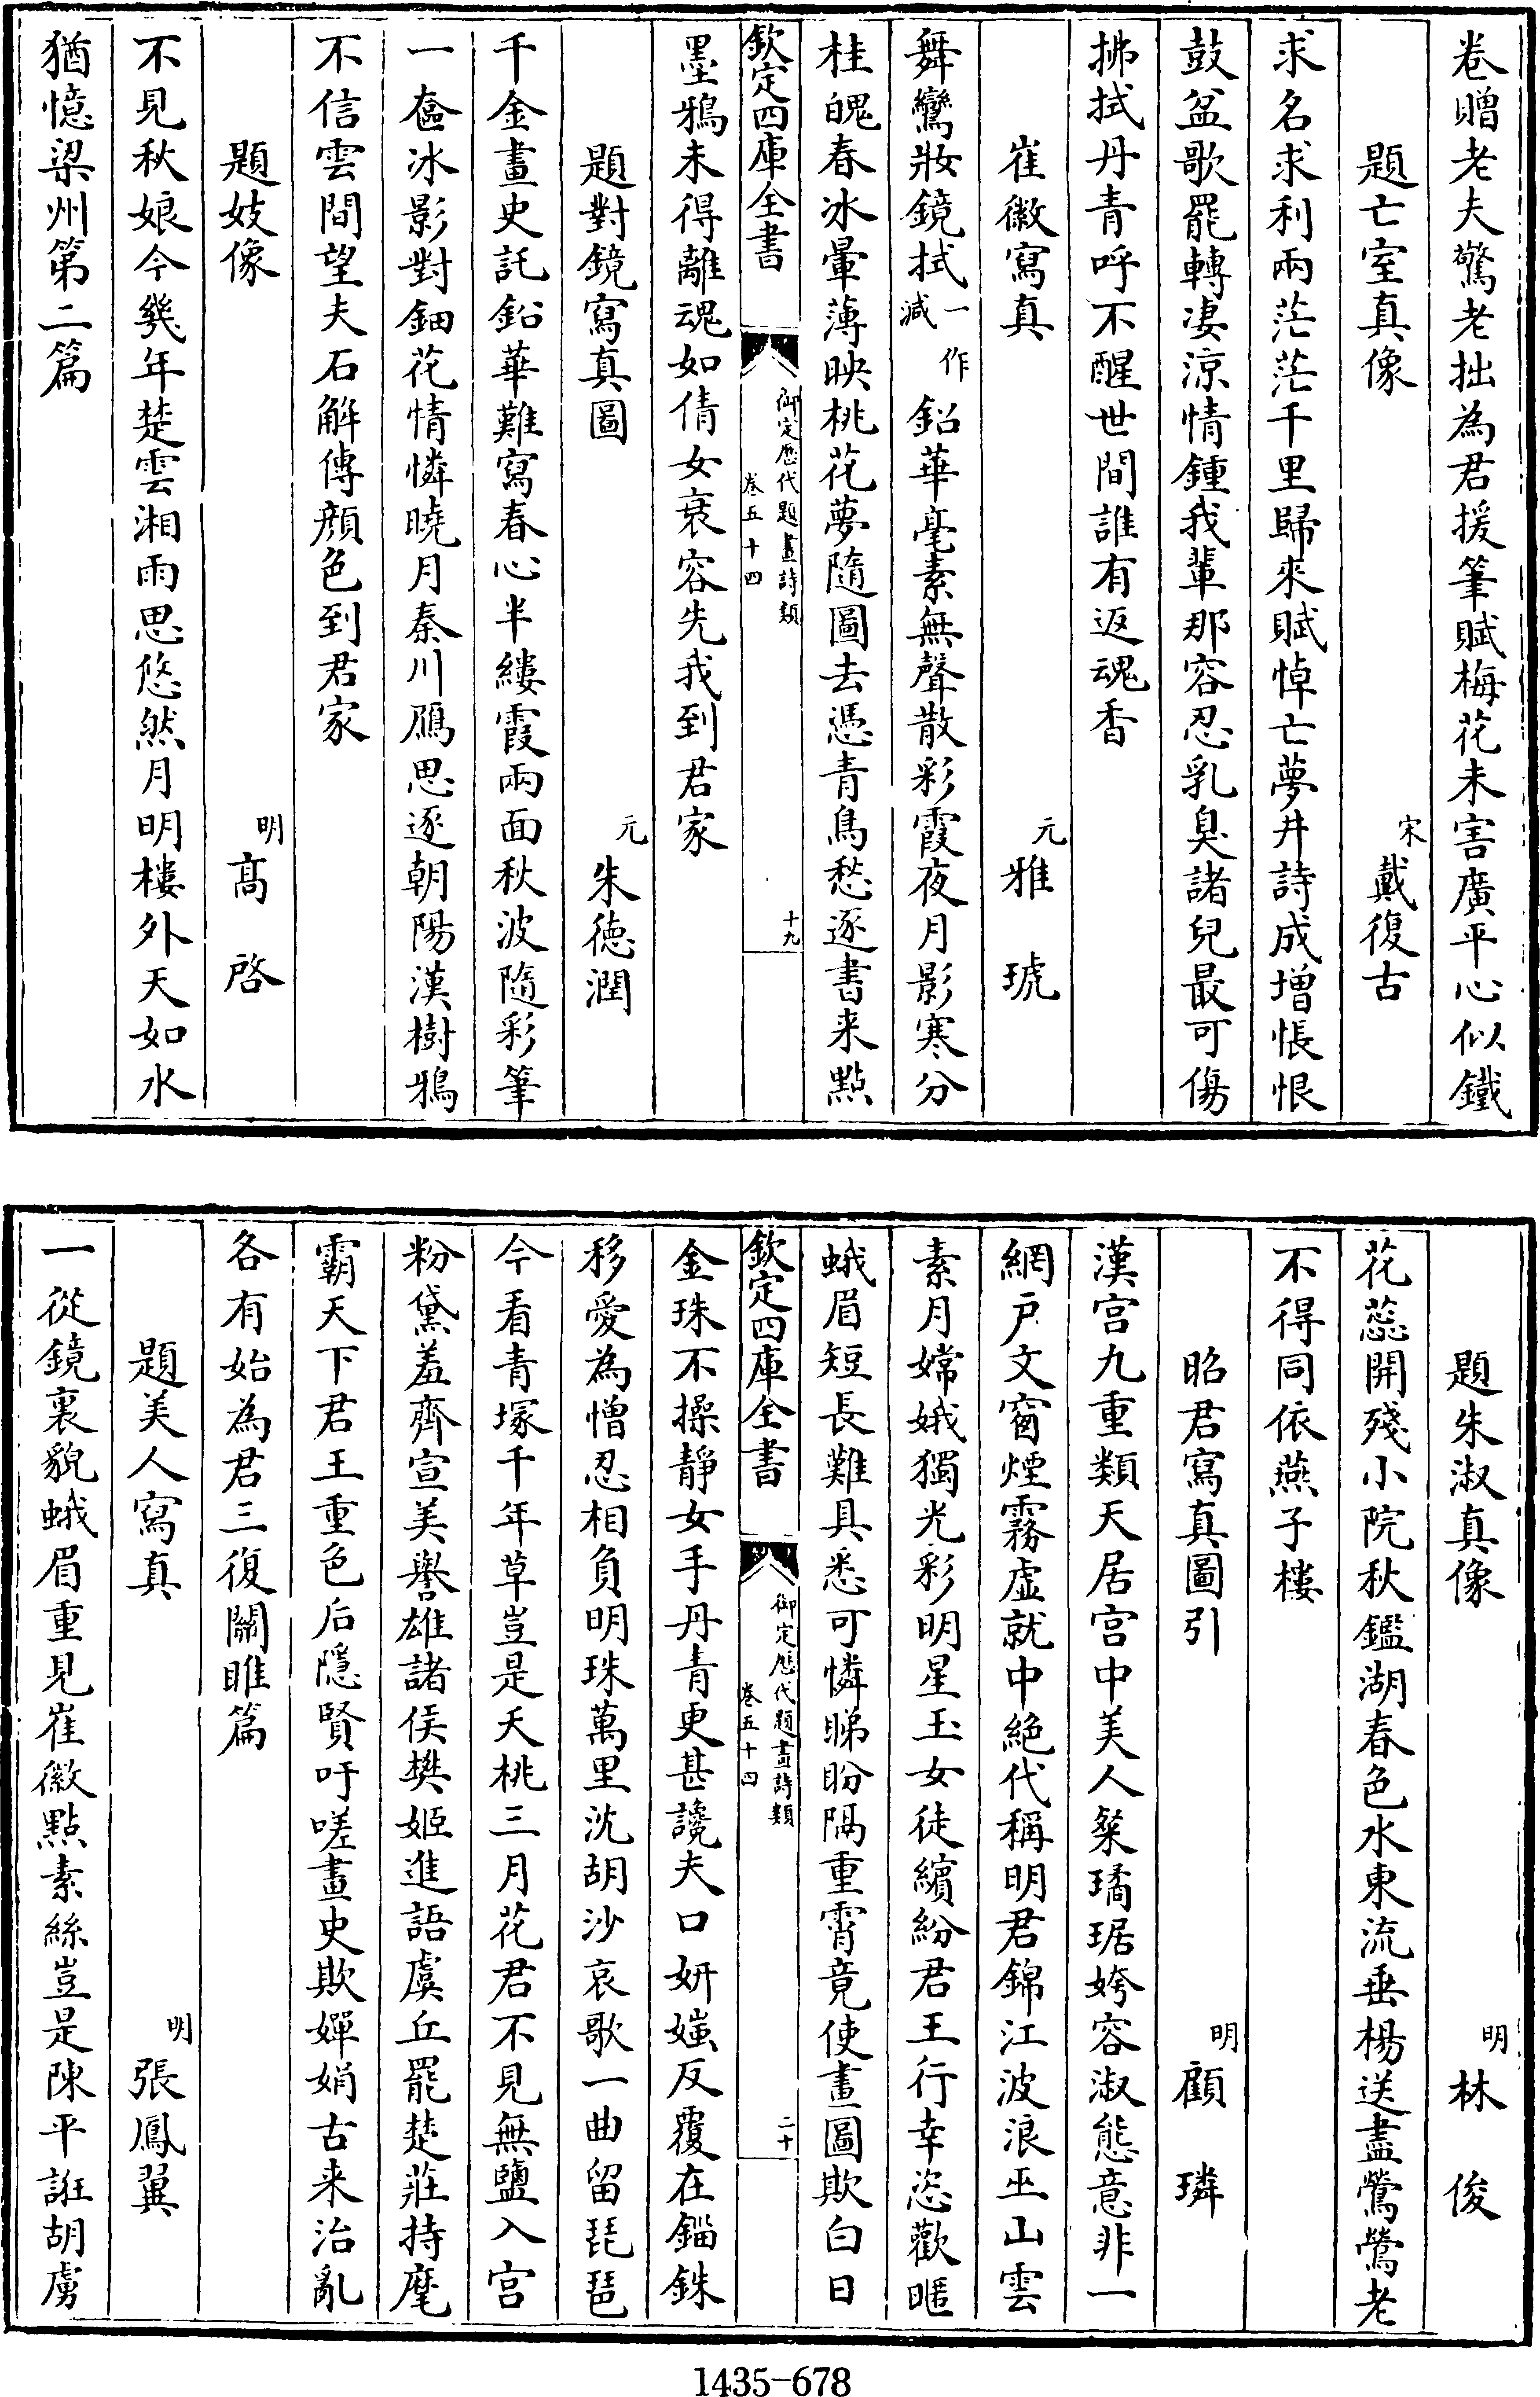 卷贈老夫驚老拙為君援筆賦梅花未害廣平心似鐵
題亡室真像
宋戴復古
求名求利兩茫茫千里歸來賦悼亡夢井詩成增悵恨
鼓盆歌罷轉凄涼情鍾我輩那容忍乳臭諸兒最可傷
拂拭丹青呼不醒世間誰有返魂香
崔徽寫真
元雅琥
舞鸞妝鏡拭一作減鉛華毫素無聲散彩霞夜月影寒分
桂魄春冰暈薄映桃花夢隨圖去憑青鳥愁逐書来點
欽定四庫全書
御定歷代題畫詩類
卷五十四
十九
墨鴉未得離魂如倩女衰容先我到君家
題對鏡寫真圖
元朱德潤
千金畫史託鉛華難寫春心半縷霞兩面秋波隨彩筆
一奩冰影對鈿花情憐曉月秦川鴈思逐朝陽漢樹鴉
不信雲間望夫石解傳顔色到君家
題妓像
明高啓
不見秋娘今幾年楚雲湘雨思悠然月明樓外天如水
猶憶梁州第二篇
題朱淑真像
明林俊
花蕊開殘小院秋鑑湖春色水東流垂楊送盡鶯鶯老
不得同依燕子樓
昭君寫真圖引
明顧璘
漢宫九重類天居宫中美人粲璚琚姱容淑態意非一
網戶文窗煙霧虚就中絶代稱明君錦江波浪巫山雲
素月嫦娥獨光彩明星玉女徒繽紛君王行幸恣歡暱
蛾眉短長難具悉可憐睇盼隔重霄竟使畫圖欺白日
欽定四庫全書
御定歷代題畫詩類
卷五十四
二十
金珠不操靜女手丹青更甚讒夫口妍媸反覆在錙銖
移愛為憎忍相負明珠萬里沈胡沙哀歌一曲留琵琶
今看青塚千年草豈是夭桃三月花君不見無鹽入宫
粉黛羞齊宣美譽雄諸侯樊姬進語虞丘罷楚莊持麾
霸天下君王重色后隱賢吁嗟畫史欺嬋娟古来治亂
各有始為君三復關雎篇
題美人寫真
明張鳳翼
一從鏡裏貌蛾眉重見崔徽點素絲豈是陳平誑胡虜
1435-678